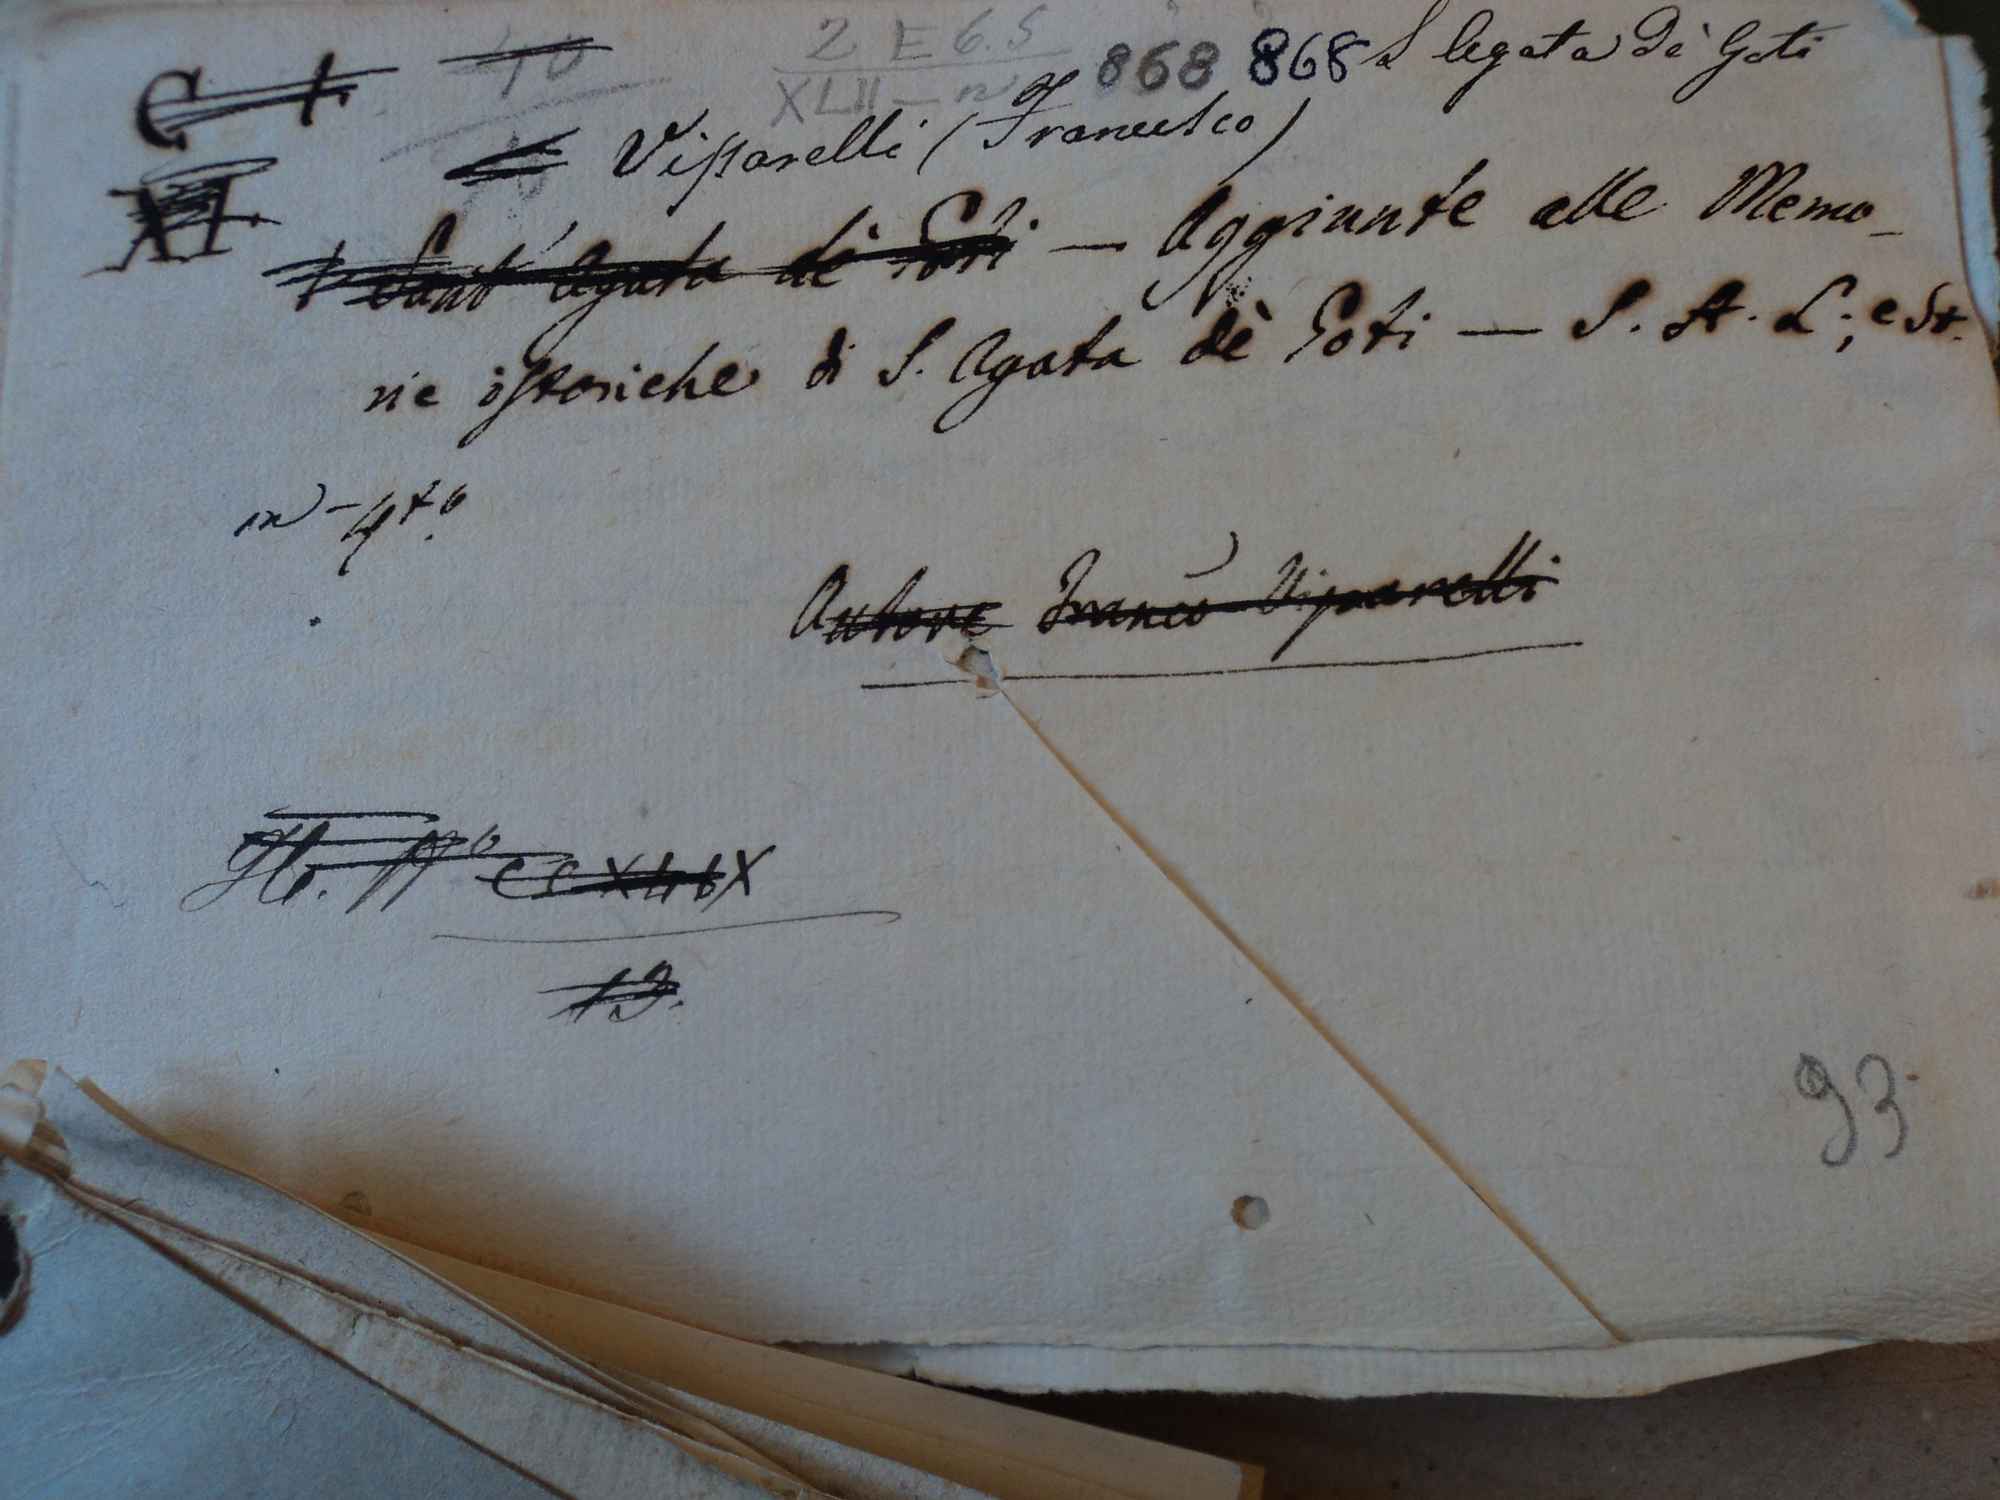 C †. 40 2 E 6.5 868 868 S Agata de' Goti
XLII - n
Vipparelli (Francesco)
XI
Sant' Agata de' Goti — Aggiunte alle Memo-
rie istoriche di S. Agata de' Goti — S. A. L.; e St.
in - 4to.
Autore Franco Vipparelli
CCXLIX
13.
93